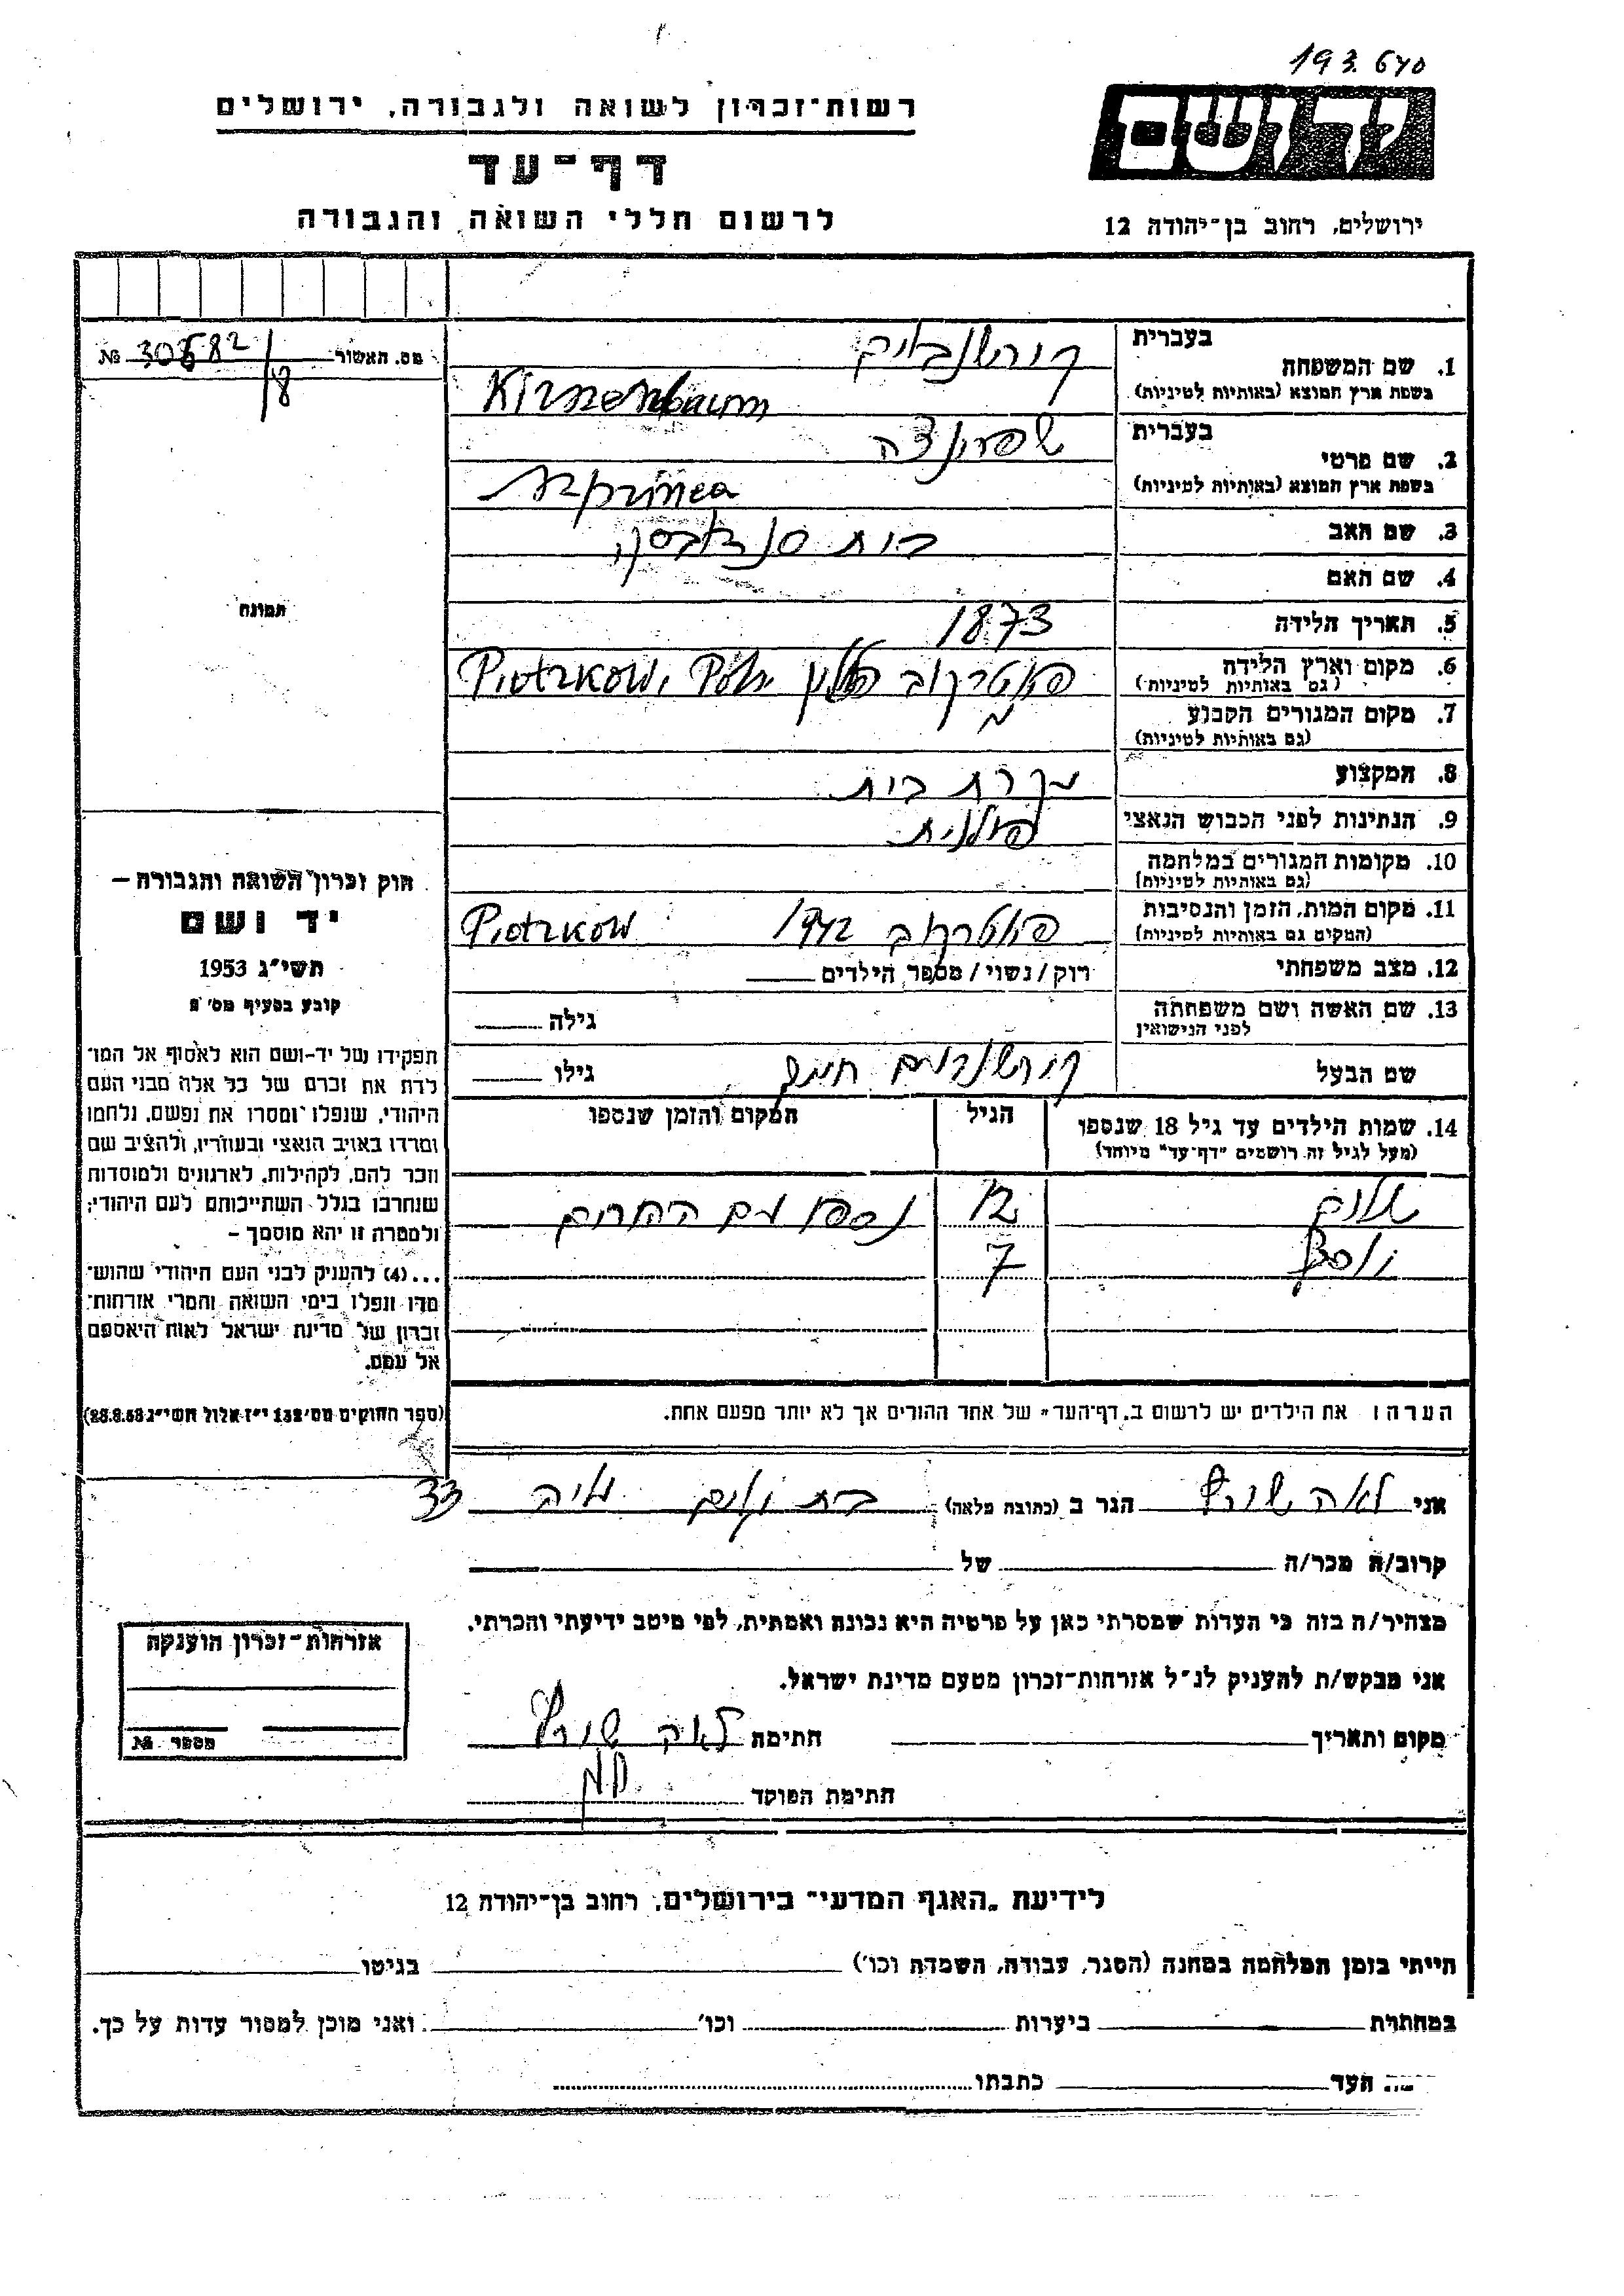 193.670
יד ושם
ירושלים, רחוב בן־יהודה 12
רשות־זכרון לשואה ולגבורה, ירושלים
דף־עד
לרשום חללי השואה והגבורה
מס. האשור № 30582/8
תמונה
בעברית
1. שם המשפחה קירשנבוים
בשפת ארץ המוצא (באותיות לטיניות)
בעברית
2. שם פרטי שפרינצה
בשפת ארץ המוצא (באותיות לטיניות)
3. שם האב בית
4. שם האם
5. תאריך הלידה 1873
6. מקום וארץ הלידה פיוטרקוב פולין Piotrkow, Polin
(גם באותיות לטיניות)
7. מקום המגורים הקבוע
(גם באותיות לטיניות)
8. המקצוע עקרת בית
9. הנתינות לפני הכבוש הנאצי פולנית
10. מקומות המגורים במלחמה
(גם באותיות לטיניות)
11. מקום המות, הזמן והנסיבות פיוטרקוב 1942 Piotrkow
(המקום גם באותיות לטיניות)
12. מצב משפחתי רוק/נשוי/מספר הילדים
13. שם האשה ושם משפחתה גילה
לפני הנישואין
שם הבעל קירשנבוים גילו
14. שמות הילדים עד גיל 18 שנספו הגיל המקום והזמן שנספו
(מעל לגיל זה רושמים "דף־עד" מיוחד)
שלום 12 נספו עם ההורים
יוסף 7
הערה: את הילדים יש לרשום ב„דף־העד" של אחד ההורים אך לא יותר מפעם אחת.
חוק זכרון השואה והגבורה –
יד ושם
תשי״ג 1953
קובע בסעיף מס׳ 2
תפקידו של יד-ושם הוא לאסוף אל המו־
לדת את זכרם של כל אלה מבני העם
היהודי, שנפלו ומסרו את נפשם, נלחמו
ומרדו באויב הנאצי ובעוזריו, ולהציב שם
וזכר להם, לקהילות, לארגונים ולמוסדות
שנחרבו בגלל השתייכותם לעם היהודי;
ולמטרה זו יהא מוסמך –
...(4) להעניק לבני העם היהודי שהוש־
מדו ונפלו בימי השואה והמרי אזרחות־
זכרון של מדינת ישראל לאות היאספם
אל עמם.
(ספר החוקים מס׳ 132 י״ז אלול תשי״ג 28.8.53)
אני לאה שורץ הגר ב (כתובת מלאה) בת ים 33
קרוב/ה מכר/ה של
מצהיר/ה בזה כי העדות שמסרתי כאן על פרטיה היא נכונה ואמתית, לפי מיטב ידיעתי והכרתי.
אני מבקש/ת להעניק לנ״ל אזרחות־זכרון מטעם מדינת ישראל.
מקום ותאריך חתימה לאה שורץ
חתימת הפוקד
אזרחות־זכרון הוענקה
מספר №
לידיעת „האגף המדעי" בירושלים, רחוב בן־יהודה 12
הייתי בזמן המלחמה במחנה (הסגר, עבודה, השמדה וכו׳) בגיטו
במחתרת ביערות וכו׳ ואני מוכן למסור עדות על כך.
העד כתבתו